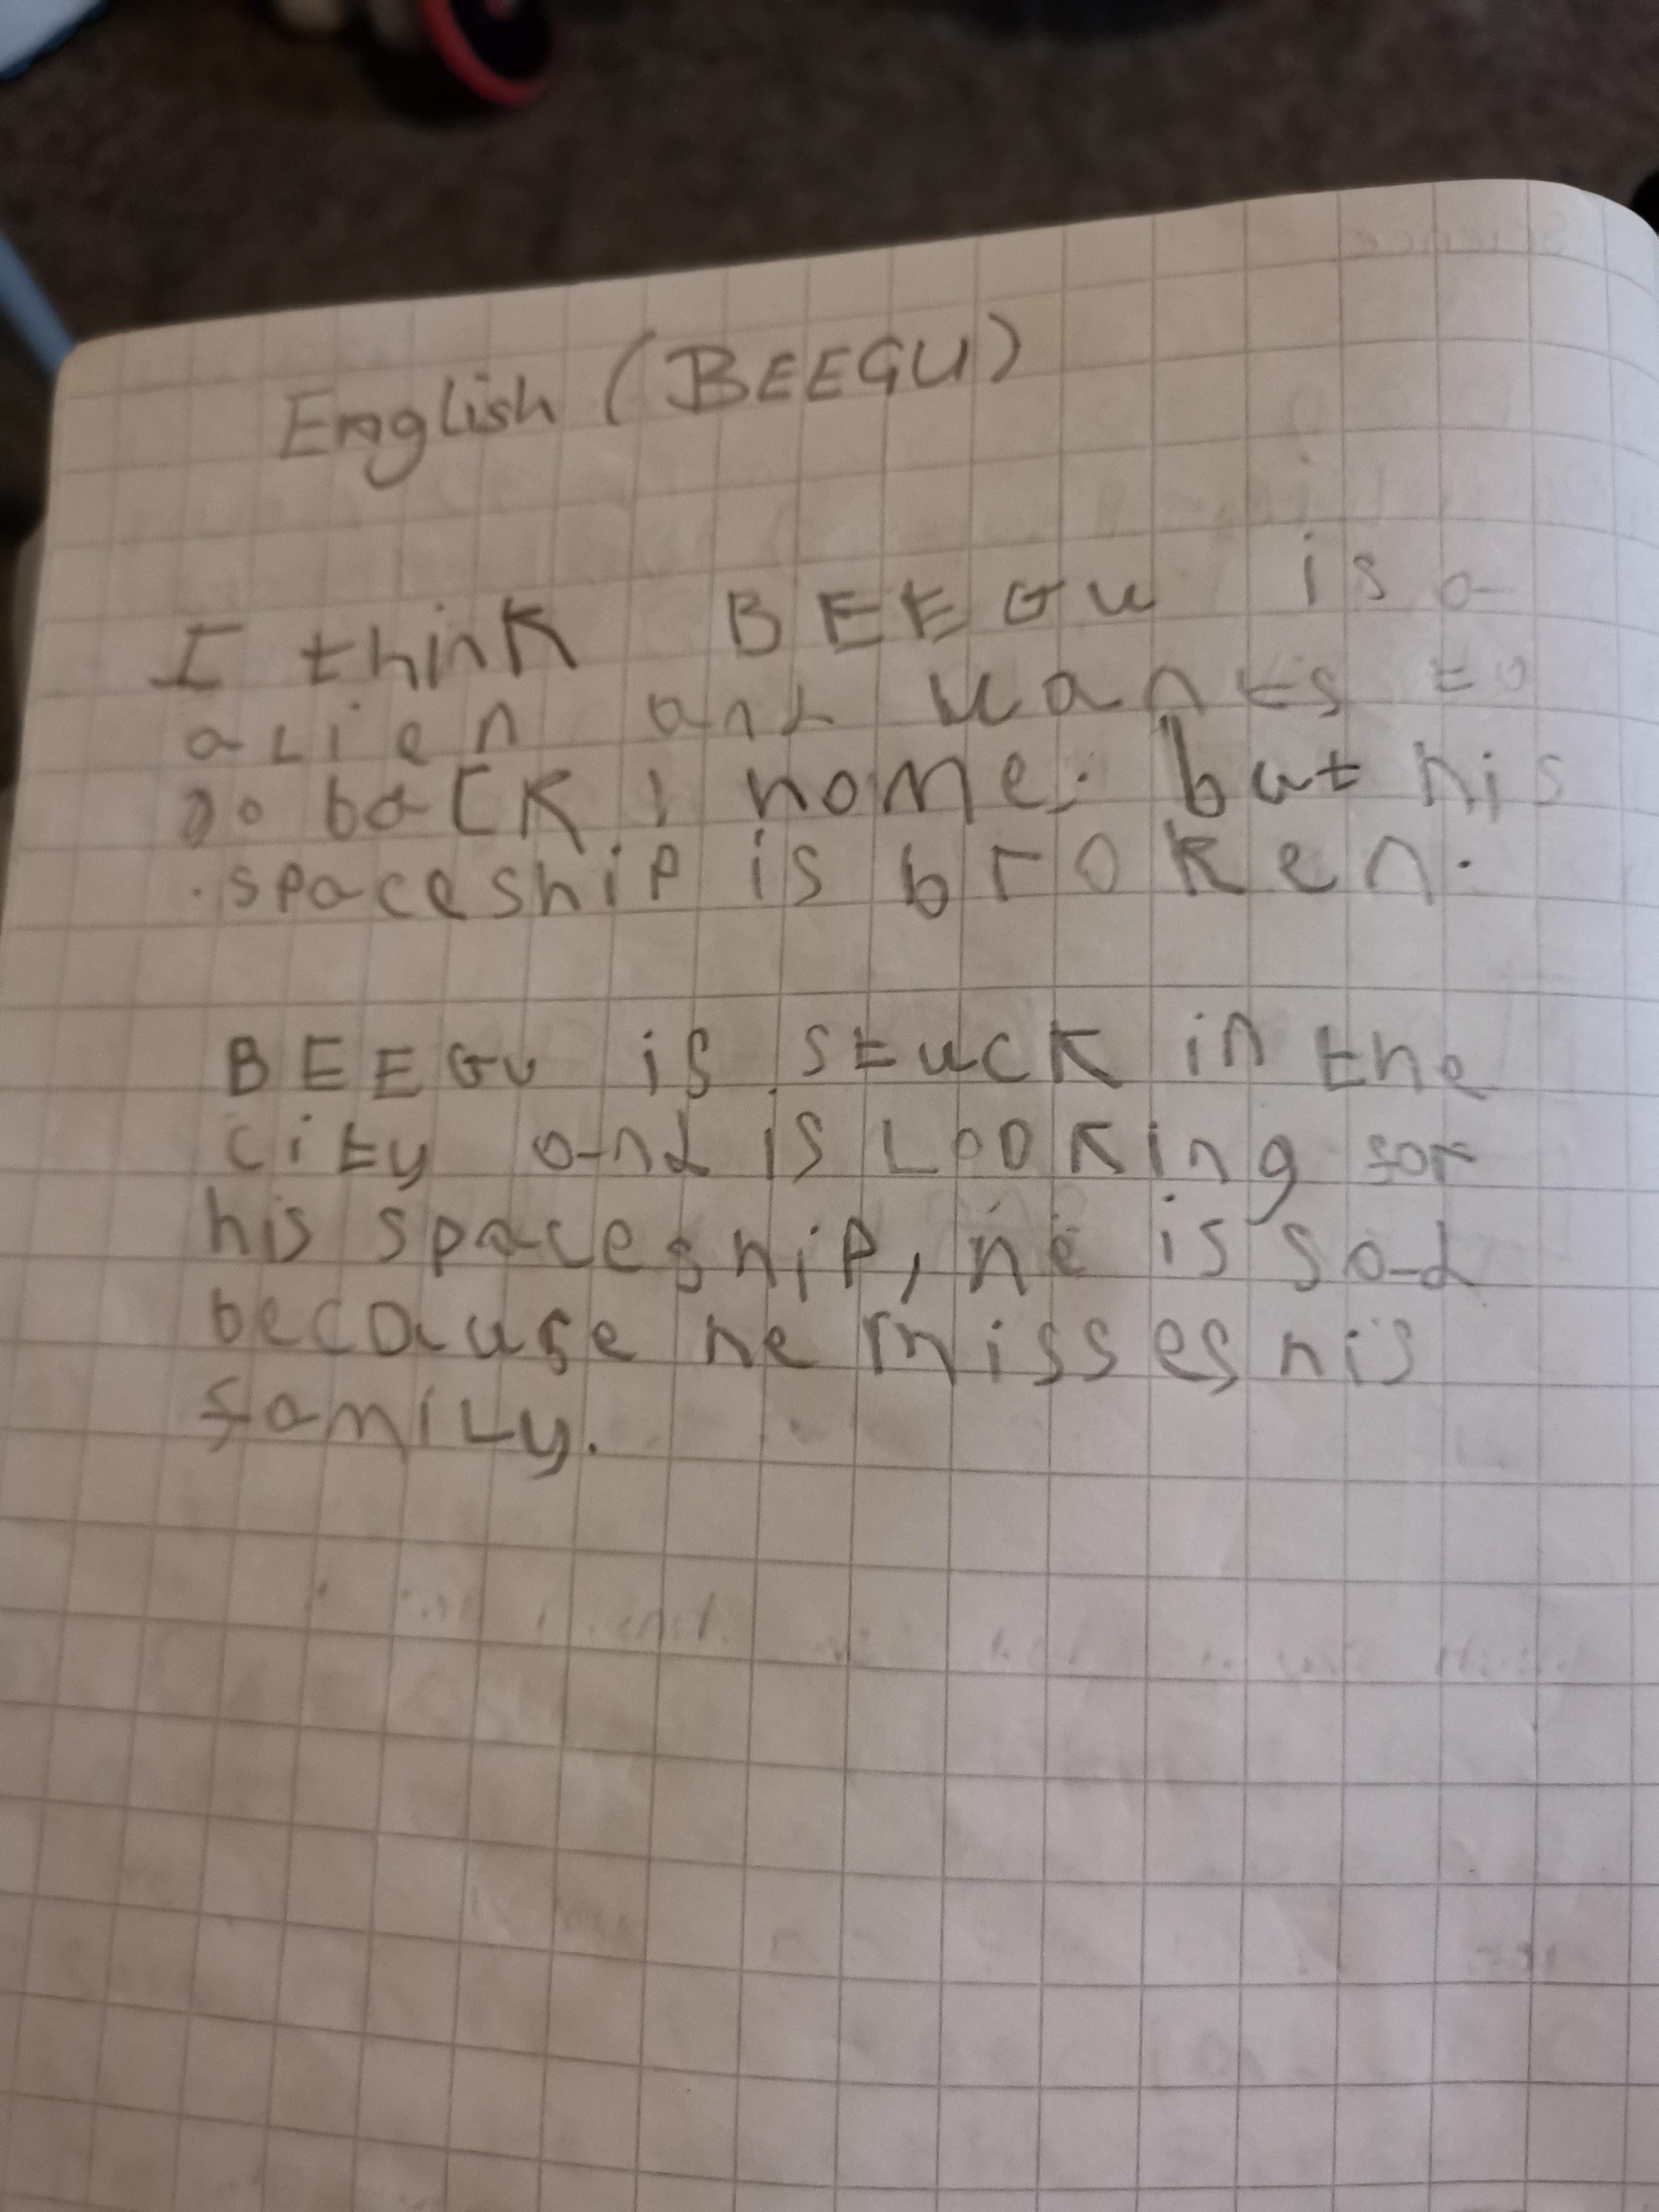 English (BEEGU)
I think BEEGU is a
alien and wants to
go back home. but his
spaceship is broken.
BEEGU is stuck in the
city and is Looking for
his spaceship, he is sad
because he misses his
family.